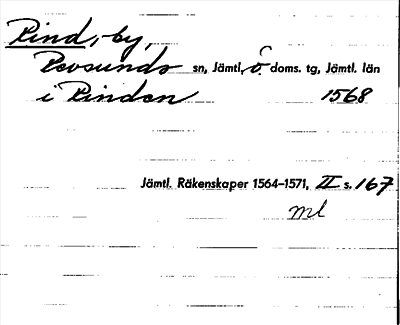 Rind, -by,
Revsunds sn, Jämtl. ö. doms. tg, Jämtl. län
i Rinden 1568
Jämtl. Räkenskaper 1564–1571, II s. 167
ml